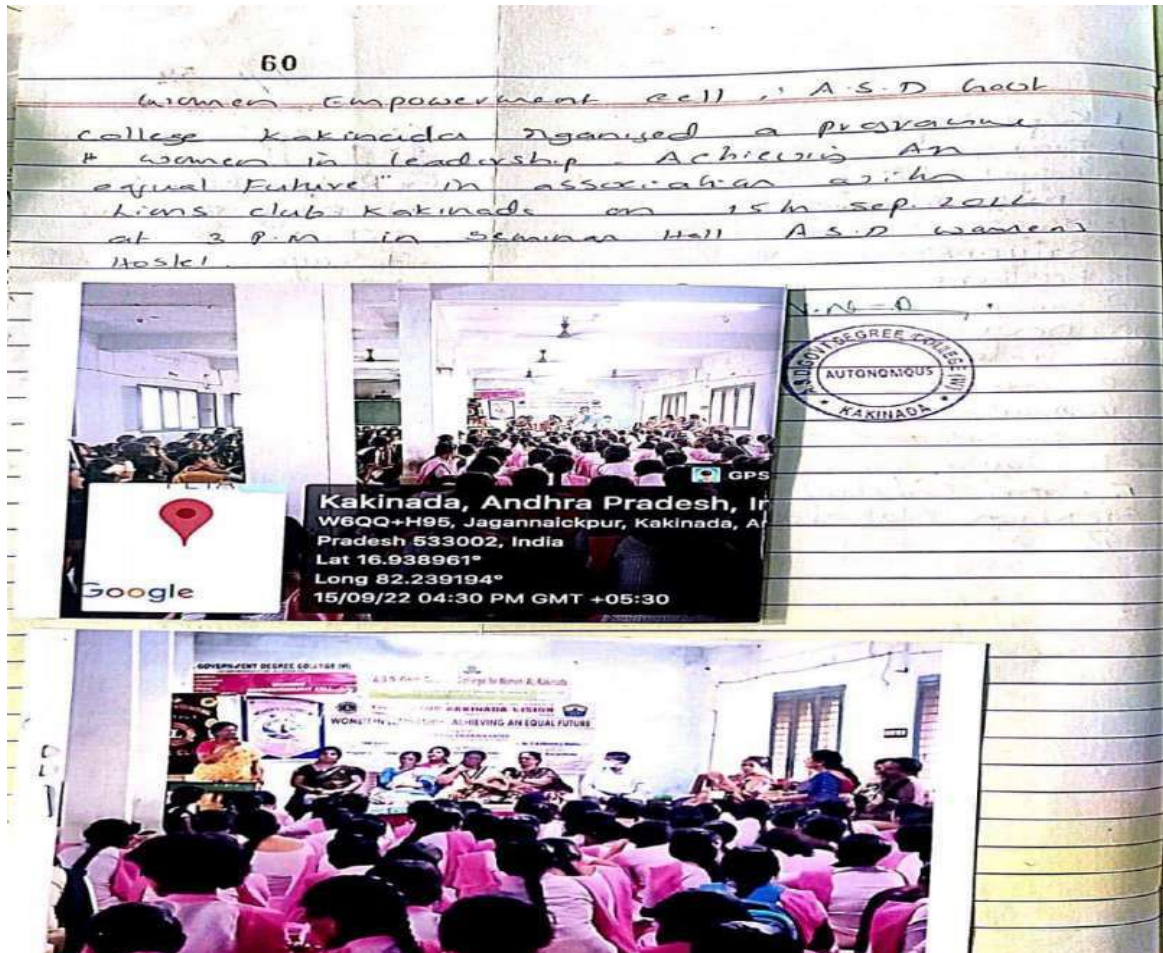 60
Women Empowerment cell, A.S.D Govt
college Kakinada organised a programme
" women in leadership - Achieving An
equal Future" in association with
Lions club Kakinada on 15th Sep. 2022
at 3 P.M in Seminar Hall A.S.D women's
Hostel.
A.S.D GOVT DEGREE COLLEGE (W)
AUTONOMOUS
* KAKINADA *
GPS
Kakinada, Andhra Pradesh, In
W6QQ+H95, Jagannaickpur, Kakinada, A
Pradesh 533002, India
Lat 16.938961°
Long 82.239194°
15/09/22 04:30 PM GMT +05:30
Google
GOVERNMENT DEGREE COLLEGE (W)
A.S.D. Govt. College for Women (A), Kakinada
KAKINADA VISION
WOMEN IN ACHIEVING AN EQUAL FUTURE